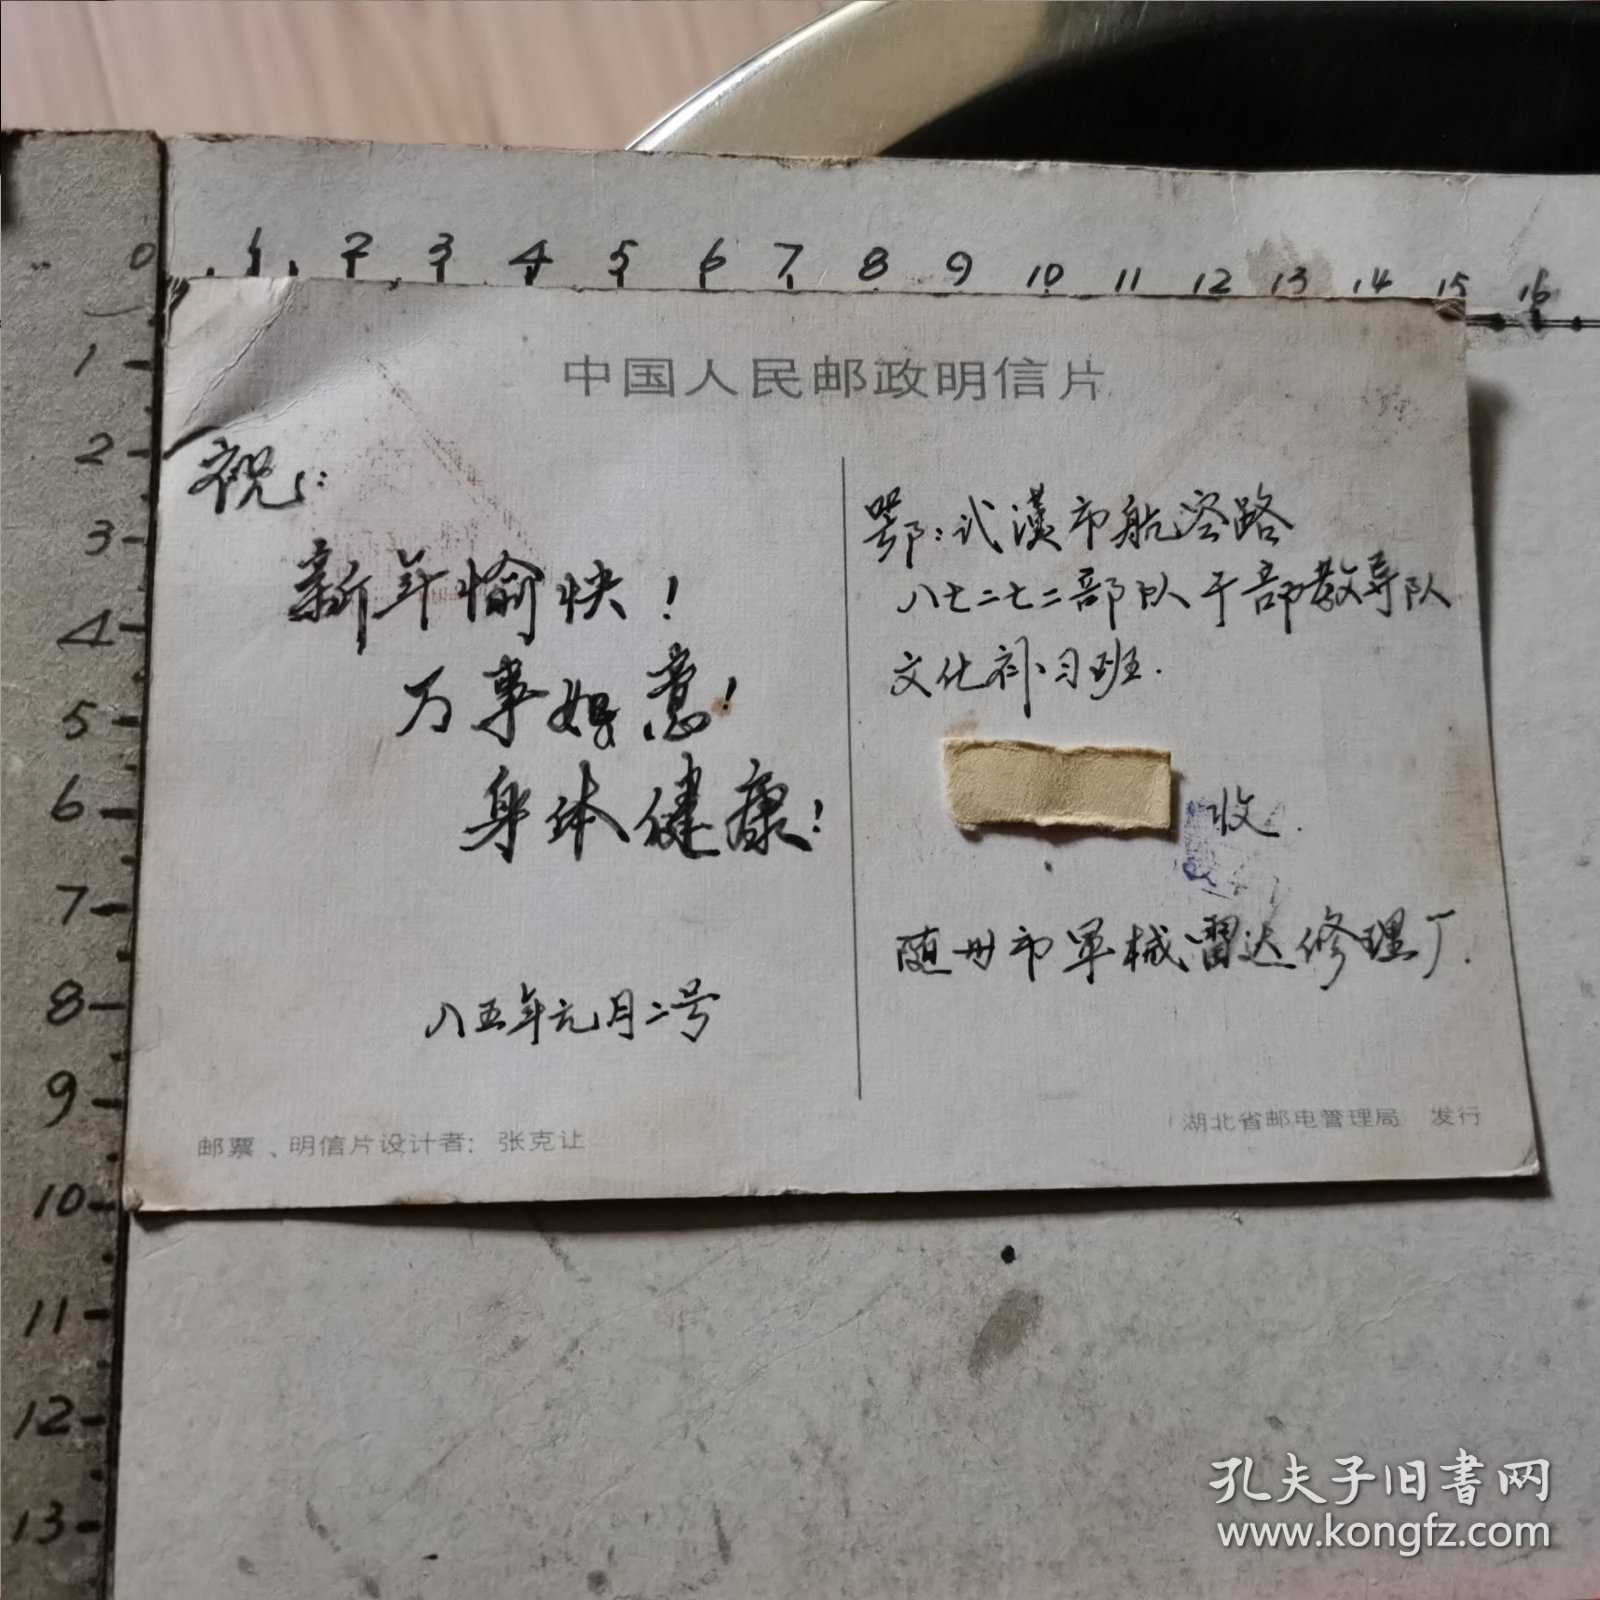 0 1 2 3 4 5 6 7 8 9 10 11 12 13 14 15 16
1
2
3
4
5
6
7
8
9
10
11
12
13
中国人民邮政明信片
祝:
新年愉快!
万事如意!
身体健康!
八五年元月二号
邮票、明信片设计者: 张克让
鄂:武漢市航空路
八七二七二部队干部教导队
文化补习班.
收.
随州市军械雷达修理厂.
湖北省邮电管理局 发行
孔夫子旧书网
www.kongfz.com